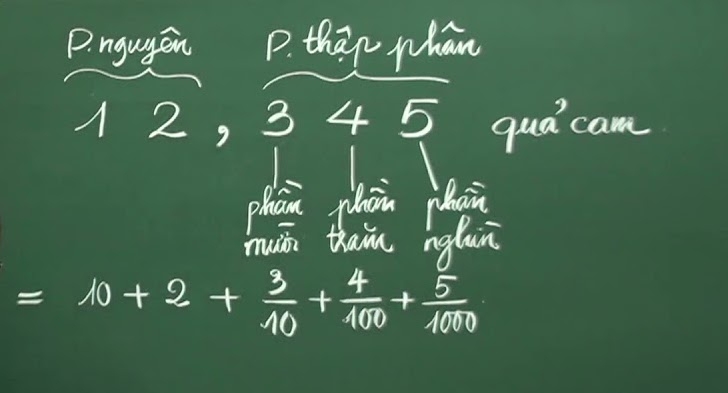 P. nguyên P. thập phân
12,345 quả cam
phần mười phần trăm phần nghìn
= 10 + 2 + 3/10 + 4/100 + 5/1000